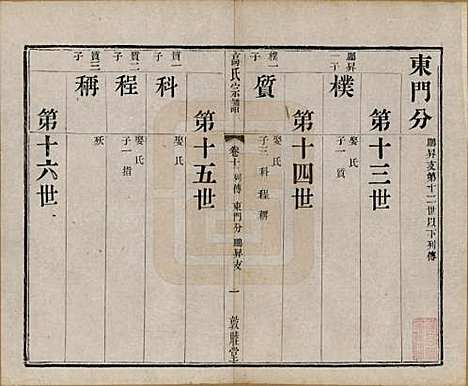 東門分
鵬昇支第十二世以下列傳
第十三世
鵬昇一子
樸
娶氏
子一質
第十四世
樸一子
質
娶氏
子三科程稱
高氏宗譜
卷十 列傳 東門分 鵬昇支
一
敦睦堂
第十五世
質一子
科
娶氏
質二子
程
娶氏
子一指
質三子
稱
殀
第十六世